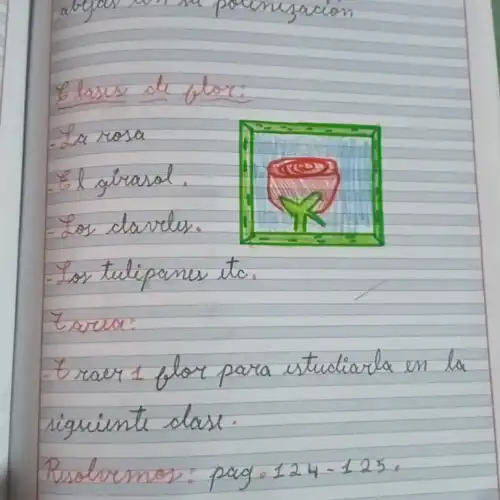 abejas con su polinización
Clases de flor:
- La rosa
- El girasol.
- Los claveles.
- Los tulipanes etc.
Tarea:
- Traer 1 flor para estudiarla en la
siguiente clase.
Resolvemos: pag. 124-125.